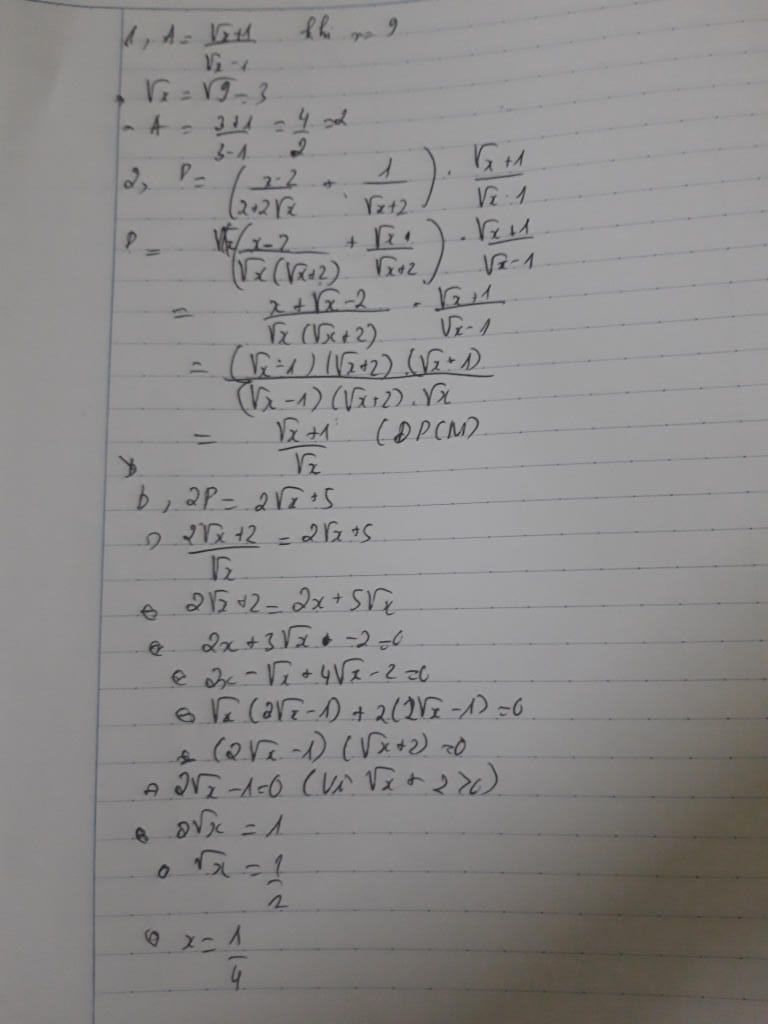 1, A = \frac{√x+1}{√x-1} khi x = 9
√x = √9 = 3
- A = \frac{3+1}{3-1} = \frac{4}{2} = 2
2, P = (\frac{x-2}{x+2√x} + \frac{1}{√x+2}) . \frac{√x+1}{√x-1}
P = (\frac{x-2}{√x(√x+2)} + \frac{√x}{√x+2}) . \frac{√x+1}{√x-1}
= \frac{x+√x-2}{√x(√x+2)} . \frac{√x+1}{√x-1}
= \frac{(√x-1)(√x+2).(√x+1)}{(√x-1)(√x+2).√x}
= \frac{√x+1}{√x} (ĐPCM)
b, 2P = 2√x+5
\frac{2√x+2}{√x} = 2√x+5
⇔ 2√x+2 = 2x+5√x
⇔ 2x+3√x-2=0
⇔ 2x-√x+4√x-2=0
⇔ √x(2√x-1)+2(2√x-1)=0
⇔ (2√x-1)(√x+2)=0
⇔ 2√x-1=0 (Vì √x+2>0)
⇔ 2√x = 1
⇔ √x = \frac{1}{2}
⇔ x = \frac{1}{4}